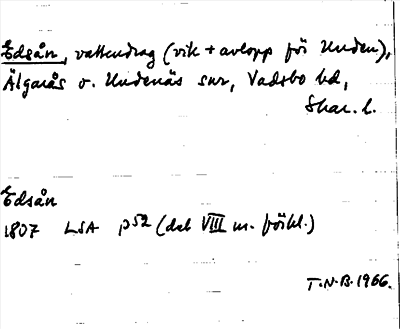 Edsån, vattendrag (vik + avlopp för Unden),
Älgarås o. Undenäs snr, Vadsbo hd,
Skar. l.
Edsån
1807 LSA P52 (del VIII m. förkl.)
T.N.B. 1966.